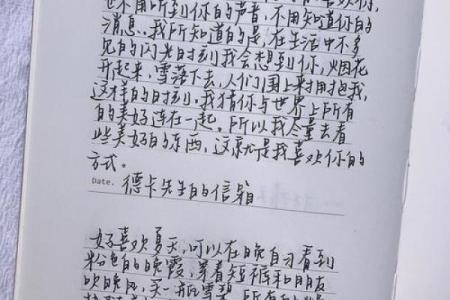 也不用听到你的声音,不用知道你的
消息。我所知道的是,在生活中不多
见的闪光时刻我会想到你,烟花
升起来,雪落下去,人们围上来拥抱我,
这样的时刻,我猜你与世界上所有
的美好连在一起。所以我尽量去看
些美好的东西,这就是我喜欢你的
方式。
Date. 德卡先生的信箱
好喜欢夏天,可以在晚自习看到
粉色的晚霞,穿着短裤和朋友
吹晚风,买一瓶雪碧,所有的